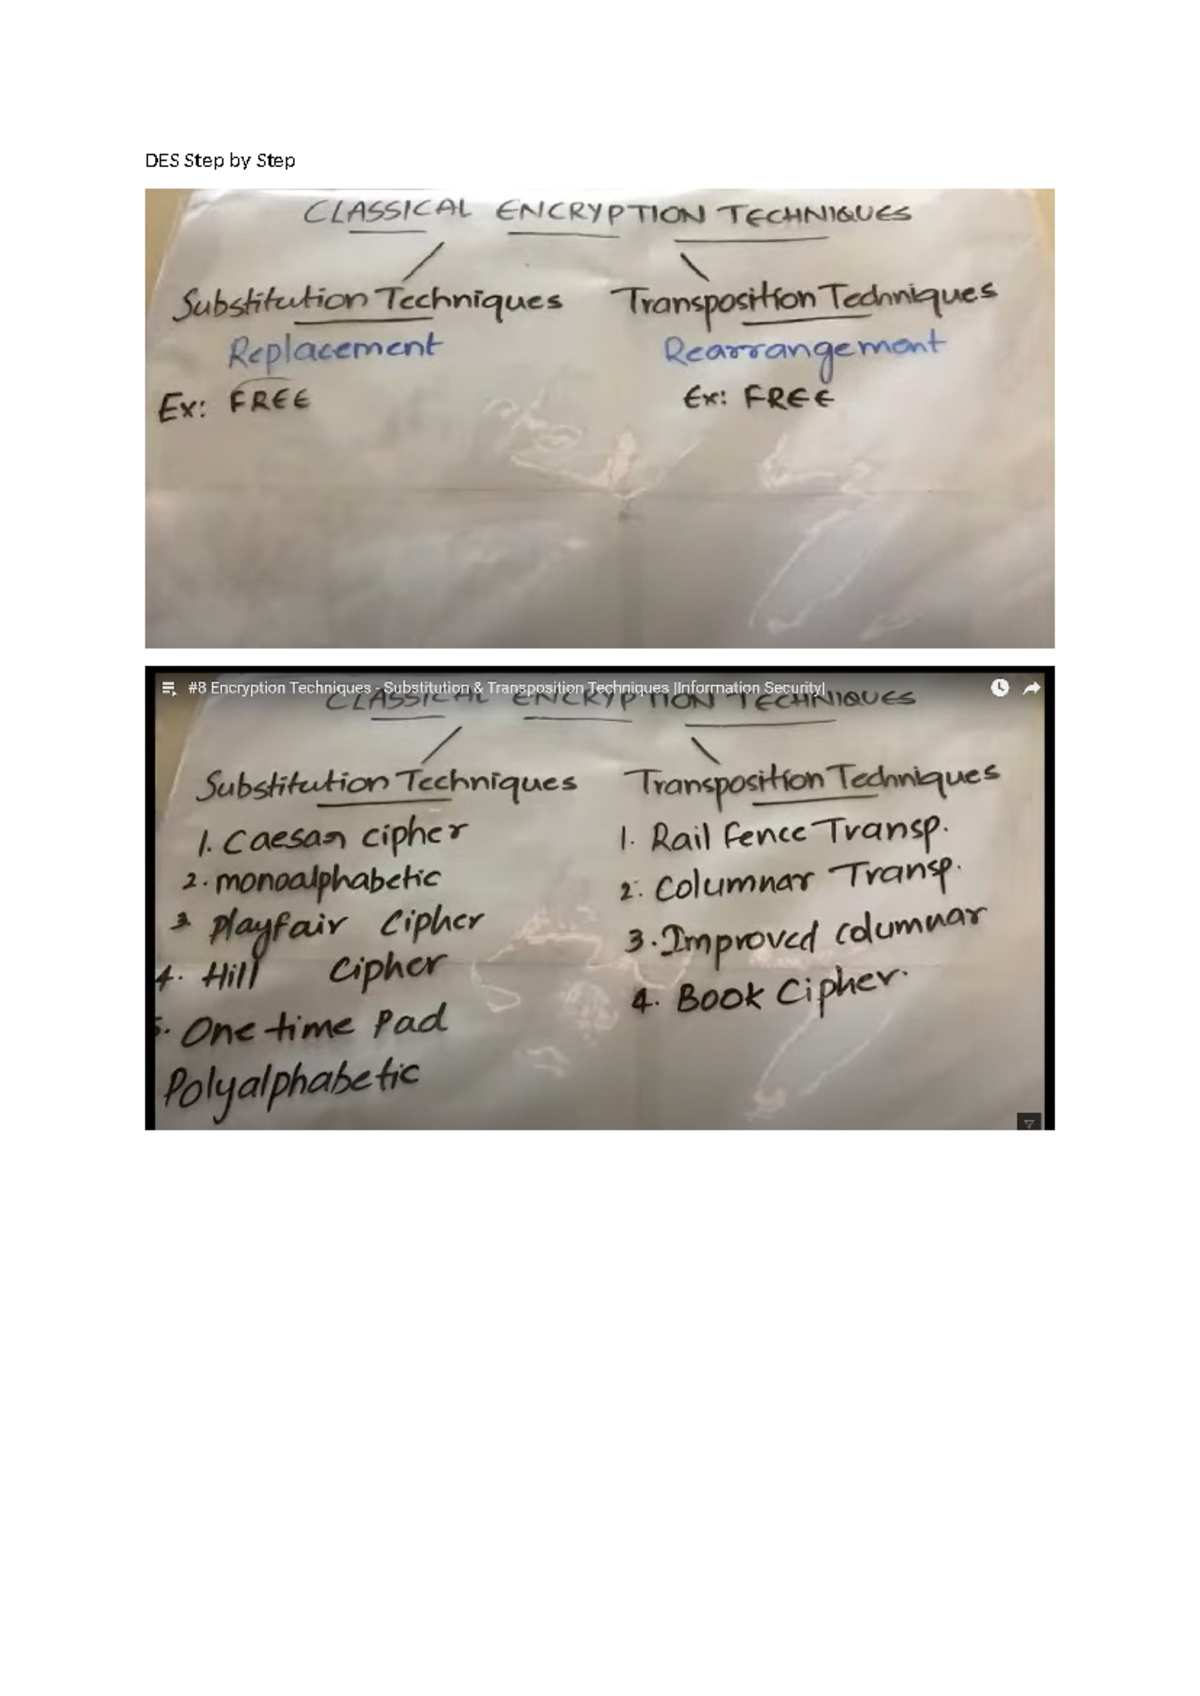 DES Step by Step
CLASSICAL ENCRYPTION TECHNIQUES
Substitution Techniques Transposition Techniques
Replacement Rearrangement
Ex: FREE Ex: FREE
#8 Encryption Techniques - Substitution & Transposition Techniques |Information Security|
CLASSICAL ENCRYPTION TECHNIQUES
Substitution Techniques Transposition Techniques
1. Caesar cipher 1. Rail fence Transp.
2. monoalphabetic 2. Columnar Transp.
3 Playfair Cipher 3. Improved columnar
4. Hill Cipher 4. Book Cipher.
5. One time Pad
Polyalphabetic